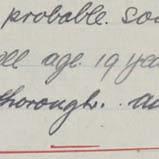 probable. so
age 19 yea
thorough. a